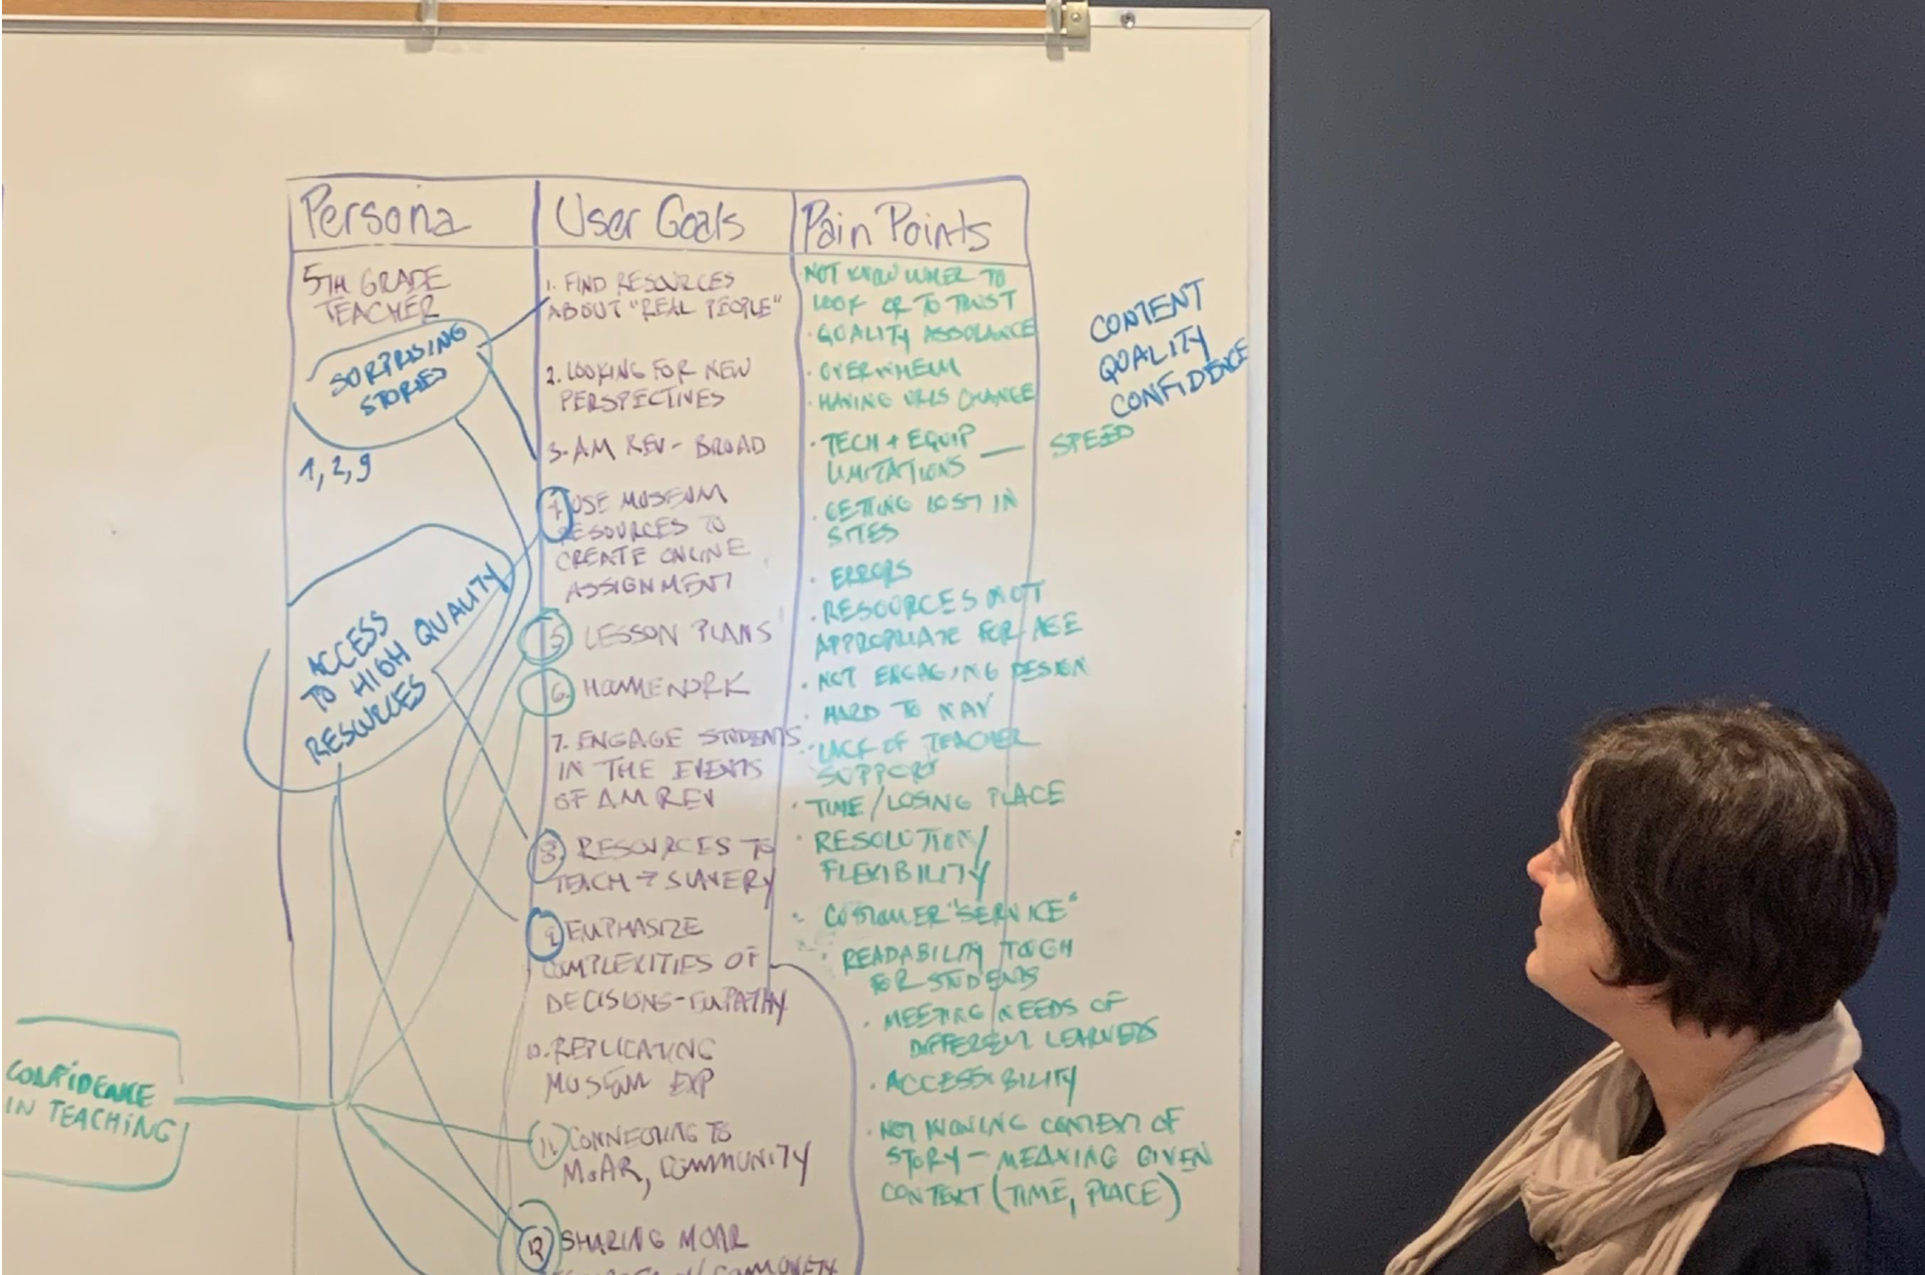 Persona
5TH GRADE
TEACHER
SURPRISING
STORIES
1, 2, 9
ACCESS
TO HIGH QUALITY
RESOURCES
CONFIDENCE
IN TEACHING
User Goals
1. FIND RESOURCES
ABOUT "REAL PEOPLE"
2. LOOKING FOR NEW
PERSPECTIVES
3. AM REV - BROAD
4 USE MUSEUM
RESOURCES TO
CREATE ONLINE
ASSIGNMENT
5 LESSON PLANS
6. HOMEWORK
7. ENGAGE STUDENTS
IN THE EVENTS
OF AM REV
8. RESOURCES TO
TEACH → SLAVERY
9 EMPHASIZE
COMPLEXITIES OF
DECISIONS - EMPATHY
10. REPLICATING
MUSEUM EXP
11. CONNECTING TO
MOAR, COMMUNITY
12 SHARING MOAR
/COMMUNITY
Pain Points
NOT KNOW WHER TO
LOOK OR TO TRUST
· QUALITY ASSURANCE
· OVERWHELM
· HAVING URLS CHANGE
· TECH + EQUIP
LIMITATIONS — SPEED
· GETTING LOST IN
SITES
· ERRORS
· RESOURCES NOT
APPROPRIATE FOR AGE
· NOT ENGAGING DESIGN
· HARD TO NAV
· LACK OF TEACHER
SUPPORT
· TIME/LOSING PLACE
· RESOLUTION/
FLEXIBILITY
· CUSTOMER "SERVICE"
· READABILITY TOUGH
FOR STUDENTS
· MEETING NEEDS OF
DIFFERENT LEARNERS
· ACCESSIBILITY
· NOT KNOWING CONTEXT OF
STORY - MEANING GIVEN
CONTEXT (TIME, PLACE)
CONTENT
QUALITY
CONFIDENCE